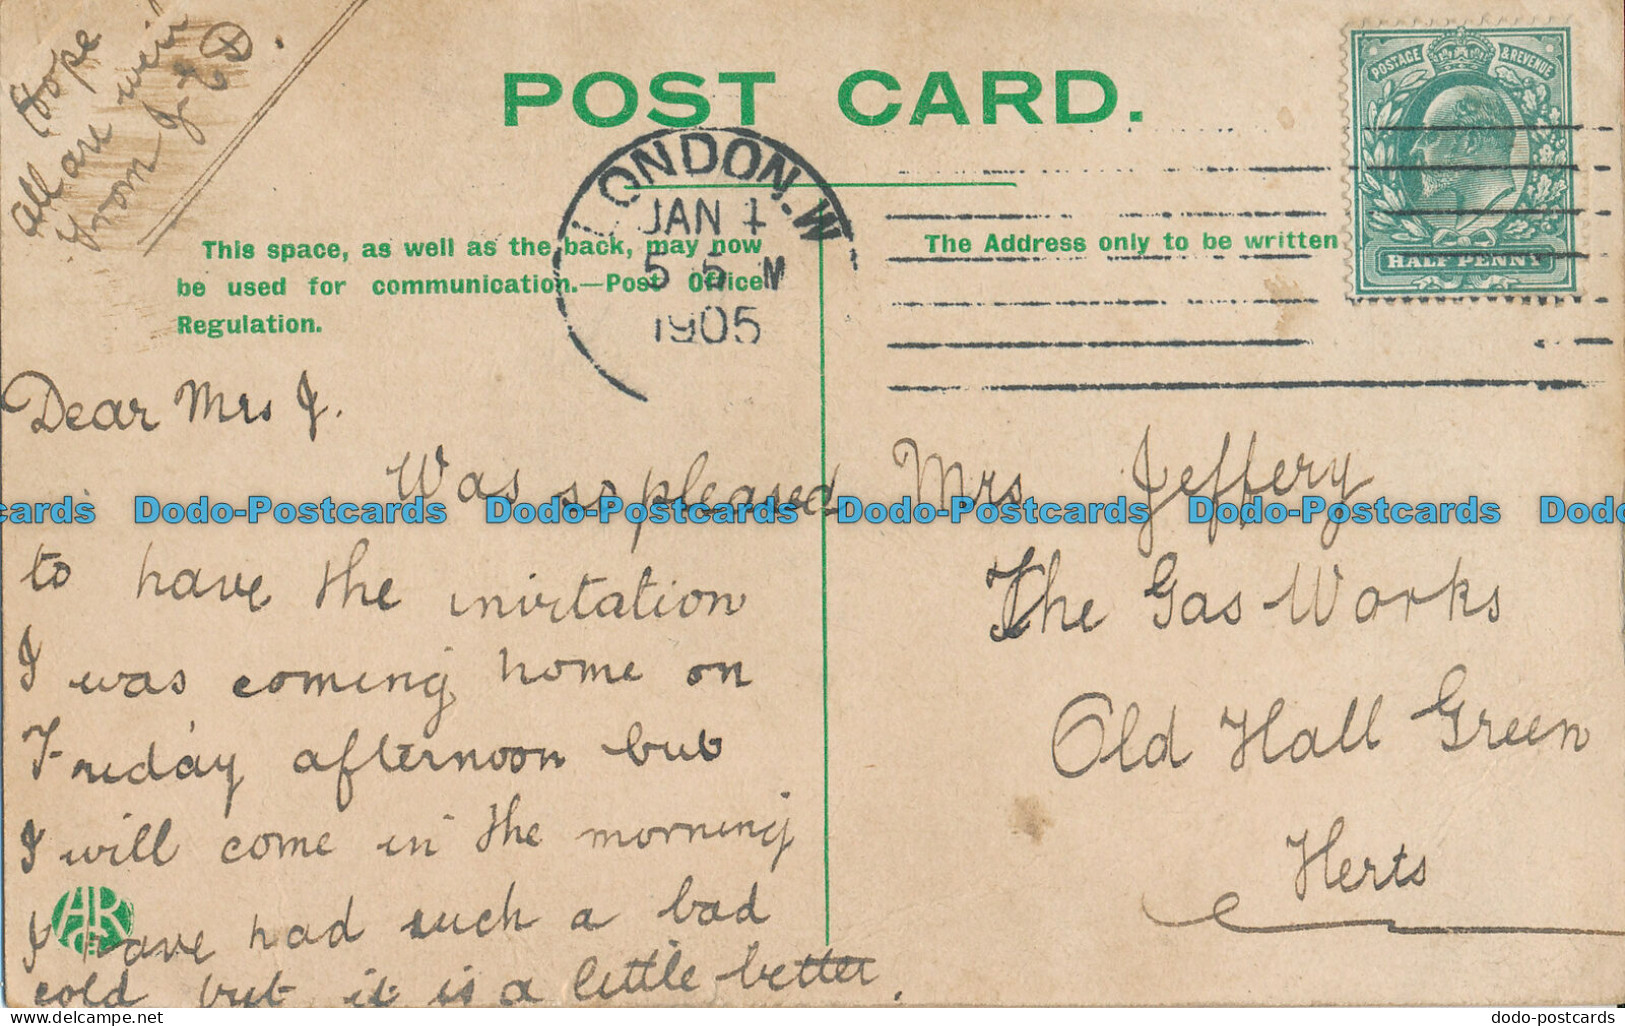 Hope
all are well
from J E
POST CARD.
LONDON.W
JAN 1
5 5 M
1905
POSTAGE & REVENUE
HALF PENNY
This space, as well as the back, may now
be used for communication.—Post Office
Regulation.
The Address only to be written
Dear Mrs J.
Was so pleased
to have the invitation
I was coming home on
Friday afternoon but
I will come in the morning
I have had such a bad
cold but it is a little better.
Mrs Jeffery
The Gas Works
Old Hall Green
Herts
Dodo-Postcards Dodo-Postcards Dodo-Postcards Dodo-Postcards
delcampe.net
dodo-postcards